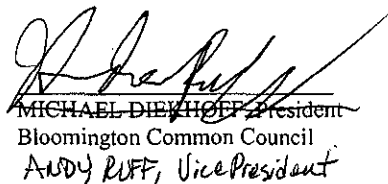 MICHAEL DIEKHOFF, President
Bloomington Common Council
ANDY RUFF, Vice President